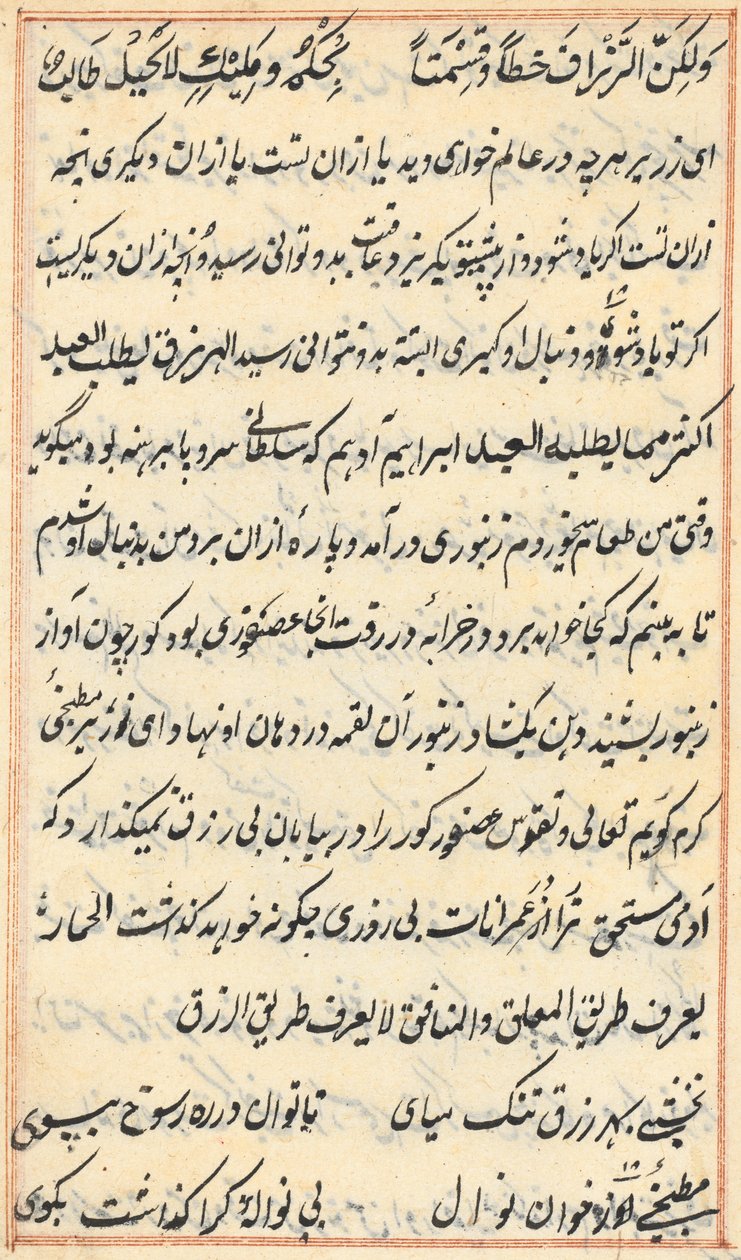 وَلٰكِنَّ الرَّزْاقَ خَطاً وَقِسْمَتاً بِحُكْمِ مَلِيْكٍ لَا بِحِيَلِ طَالِبٍ
ای زریر هرچه در عالم خواهی دید یا ازان تست یا ازان دیگری انچه
ازان تست اکر باد شود و از پیش تو بکریزد عاقبت بدو توانی رسید و انچه ازان دیکریست
اکر تو باد شوی و دنبال او کیری البتة بدو نتوانی رسید الرزق لیطلب العبد
اکثر مما یطلبه العبد ابراهیم آدهم که سلطانی سر و پا برهنه بود میگوید
وقتی من طعام میخوردم زنبوری درآمد و پارۀ ازان برد من بدنبال او شدم
تا به بینم که کجا خواهد برد در خرابۀ در رفت انجا عصفوری بود کور چون آواز
زنبور بشنید دهن بکشاد زنبور آن لقمه در دهان او نهاد ای زریر مطبخئ
کرم کویم تعالی و تقدس عصفور کور را در بیابان بی رزق نمیکذارد که
آدمی مستحق تراز عمرانات بی روزی چکونه خواهد کذاشت الحمار
یعرف طریق المعلق والمنافق لا یعرف طریق الرزق
نخشبی بهر رزق تنک میای تا توان در ره رسوخ بپوی
مطبخئ از خوان نوال بی نواله کرا کذاشت بکوی